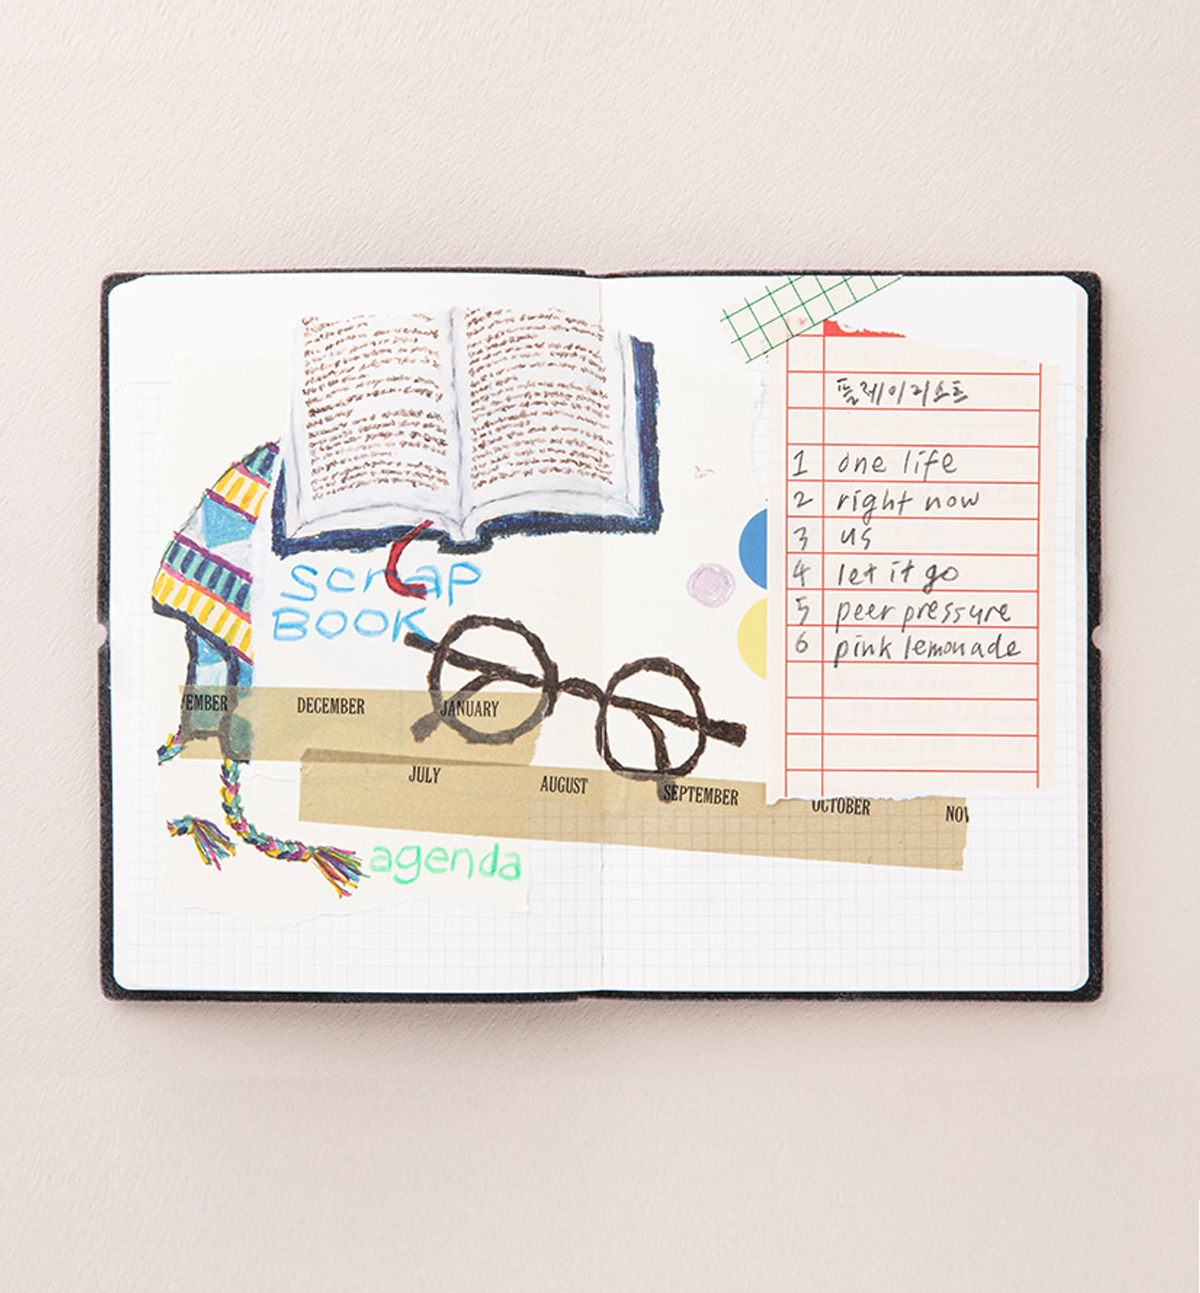 scrap
BOOK
VEMBER DECEMBER JANUARY
JULY AUGUST SEPTEMBER OCTOBER NOV
agenda
플레이리스트
1 one life
2 right now
3 us
4 let it go
5 peer pressure
6 pink lemonade